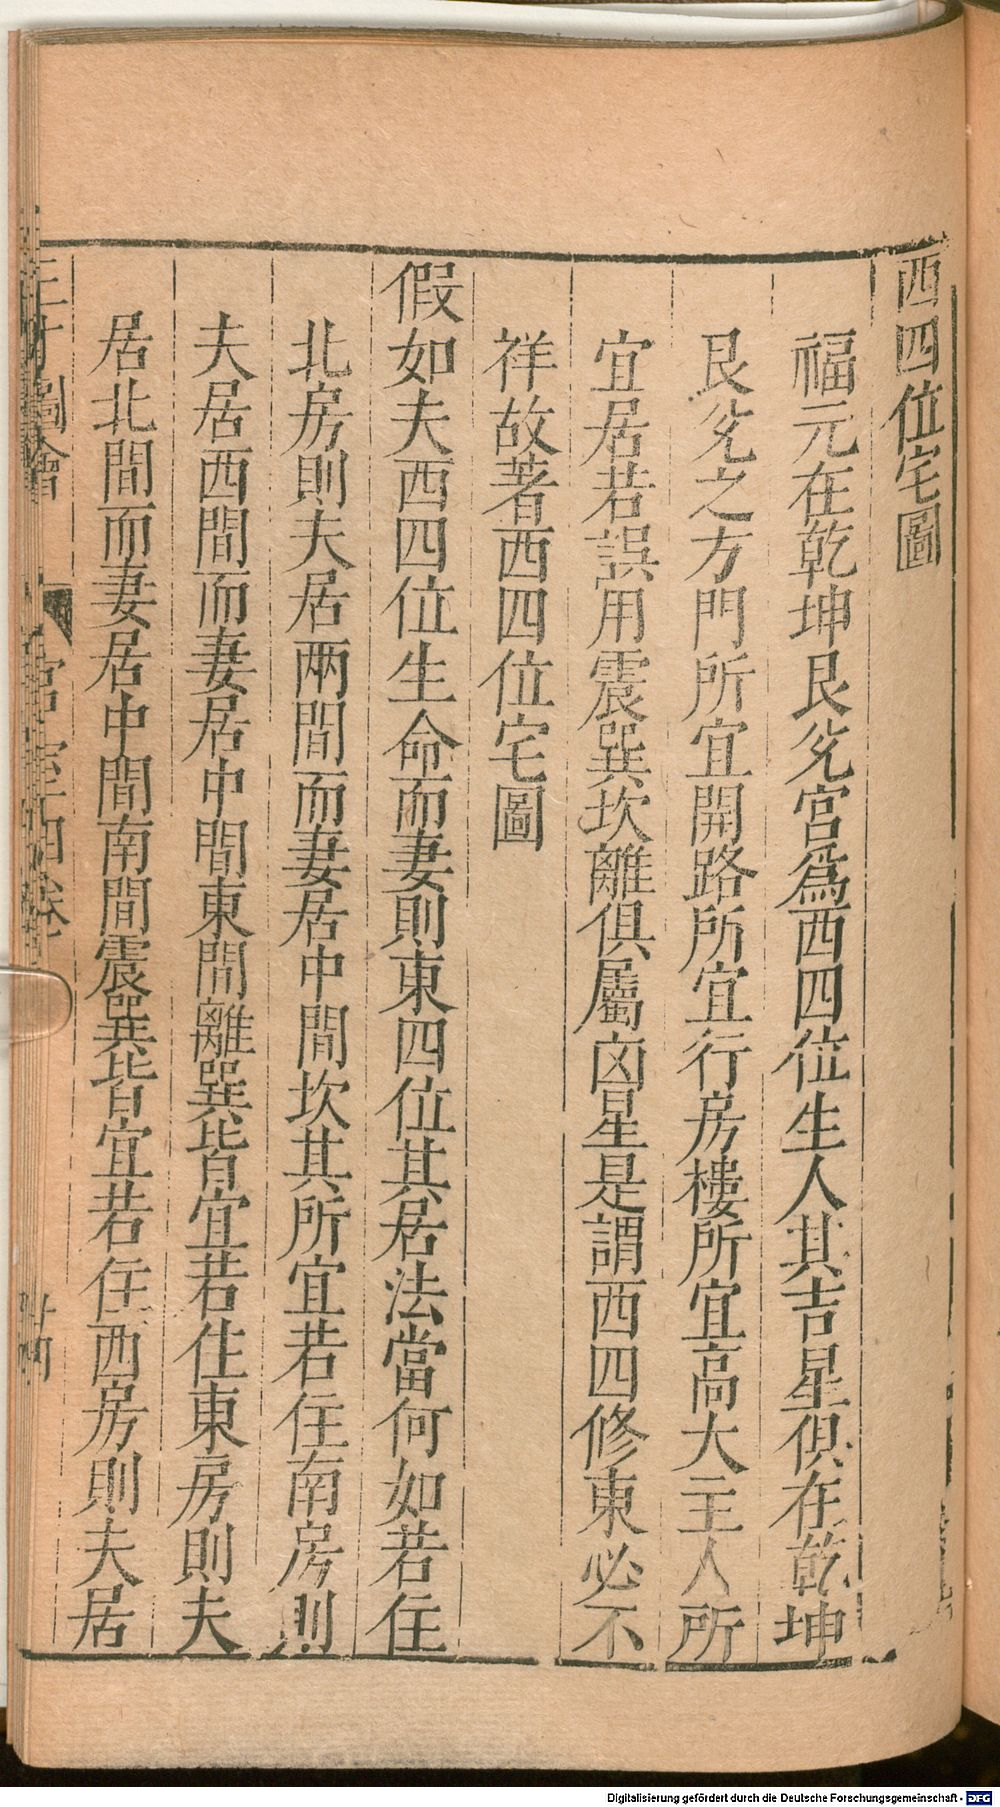 西四位宅圖
福元在乾坤艮兌宮爲西四位生人其吉星俱在乾坤
艮兌之方門所宜開路所宜行房樓所宜高大主人所
宜居若誤用震巽坎離俱屬凶星是謂西四修東必不
祥故著西四位宅圖
假如夫西四位生命而妻則東四位其居法當何如若住
北房則夫居兩間而妻居中間坎其所宜若住南房則
夫居西間而妻居中間東間離巽皆宜若住東房則夫
居北間而妻居中間南間震巽皆宜若住西房則夫居
三才圖會 宮室四卷
Digitalisierung gefördert durch die Deutsche Forschungsgemeinschaft - DFG